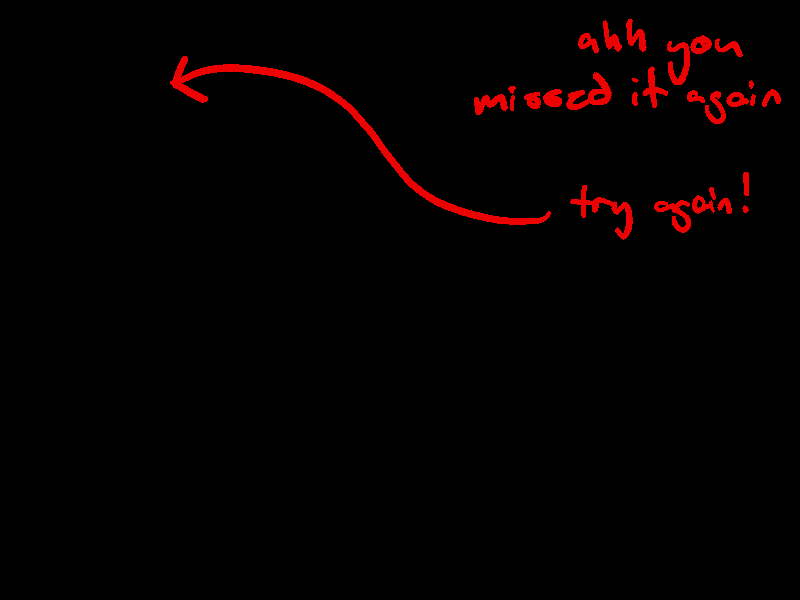 ahh you
missed it again
try again!